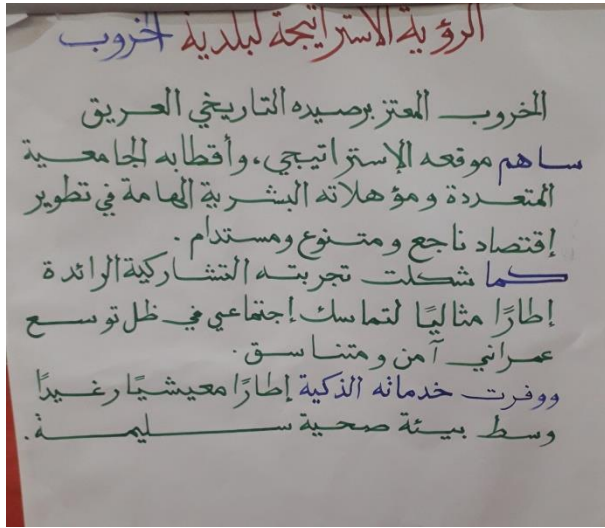 الرؤية الاستراتيجة لبلدية الخروب
الخروب المعتز برصيده التاريخي العريق
ساهم موقعه الإستراتيجي، وأقطابه الجامعية
المتعددة ومؤهلاته البشرية الهامة في تطوير
إقتصاد ناجع ومتنوع ومستدام.
كما شكلت تجربته التشاركية الرائدة
إطارًا مثاليًا لتماسك إجتماعي في ظل توسع
عمراني آمن ومتناسق.
ووفرت خدماته الذكية إطارًا معيشيًا رغيدًا
وسط بيئة صحية سليمة.